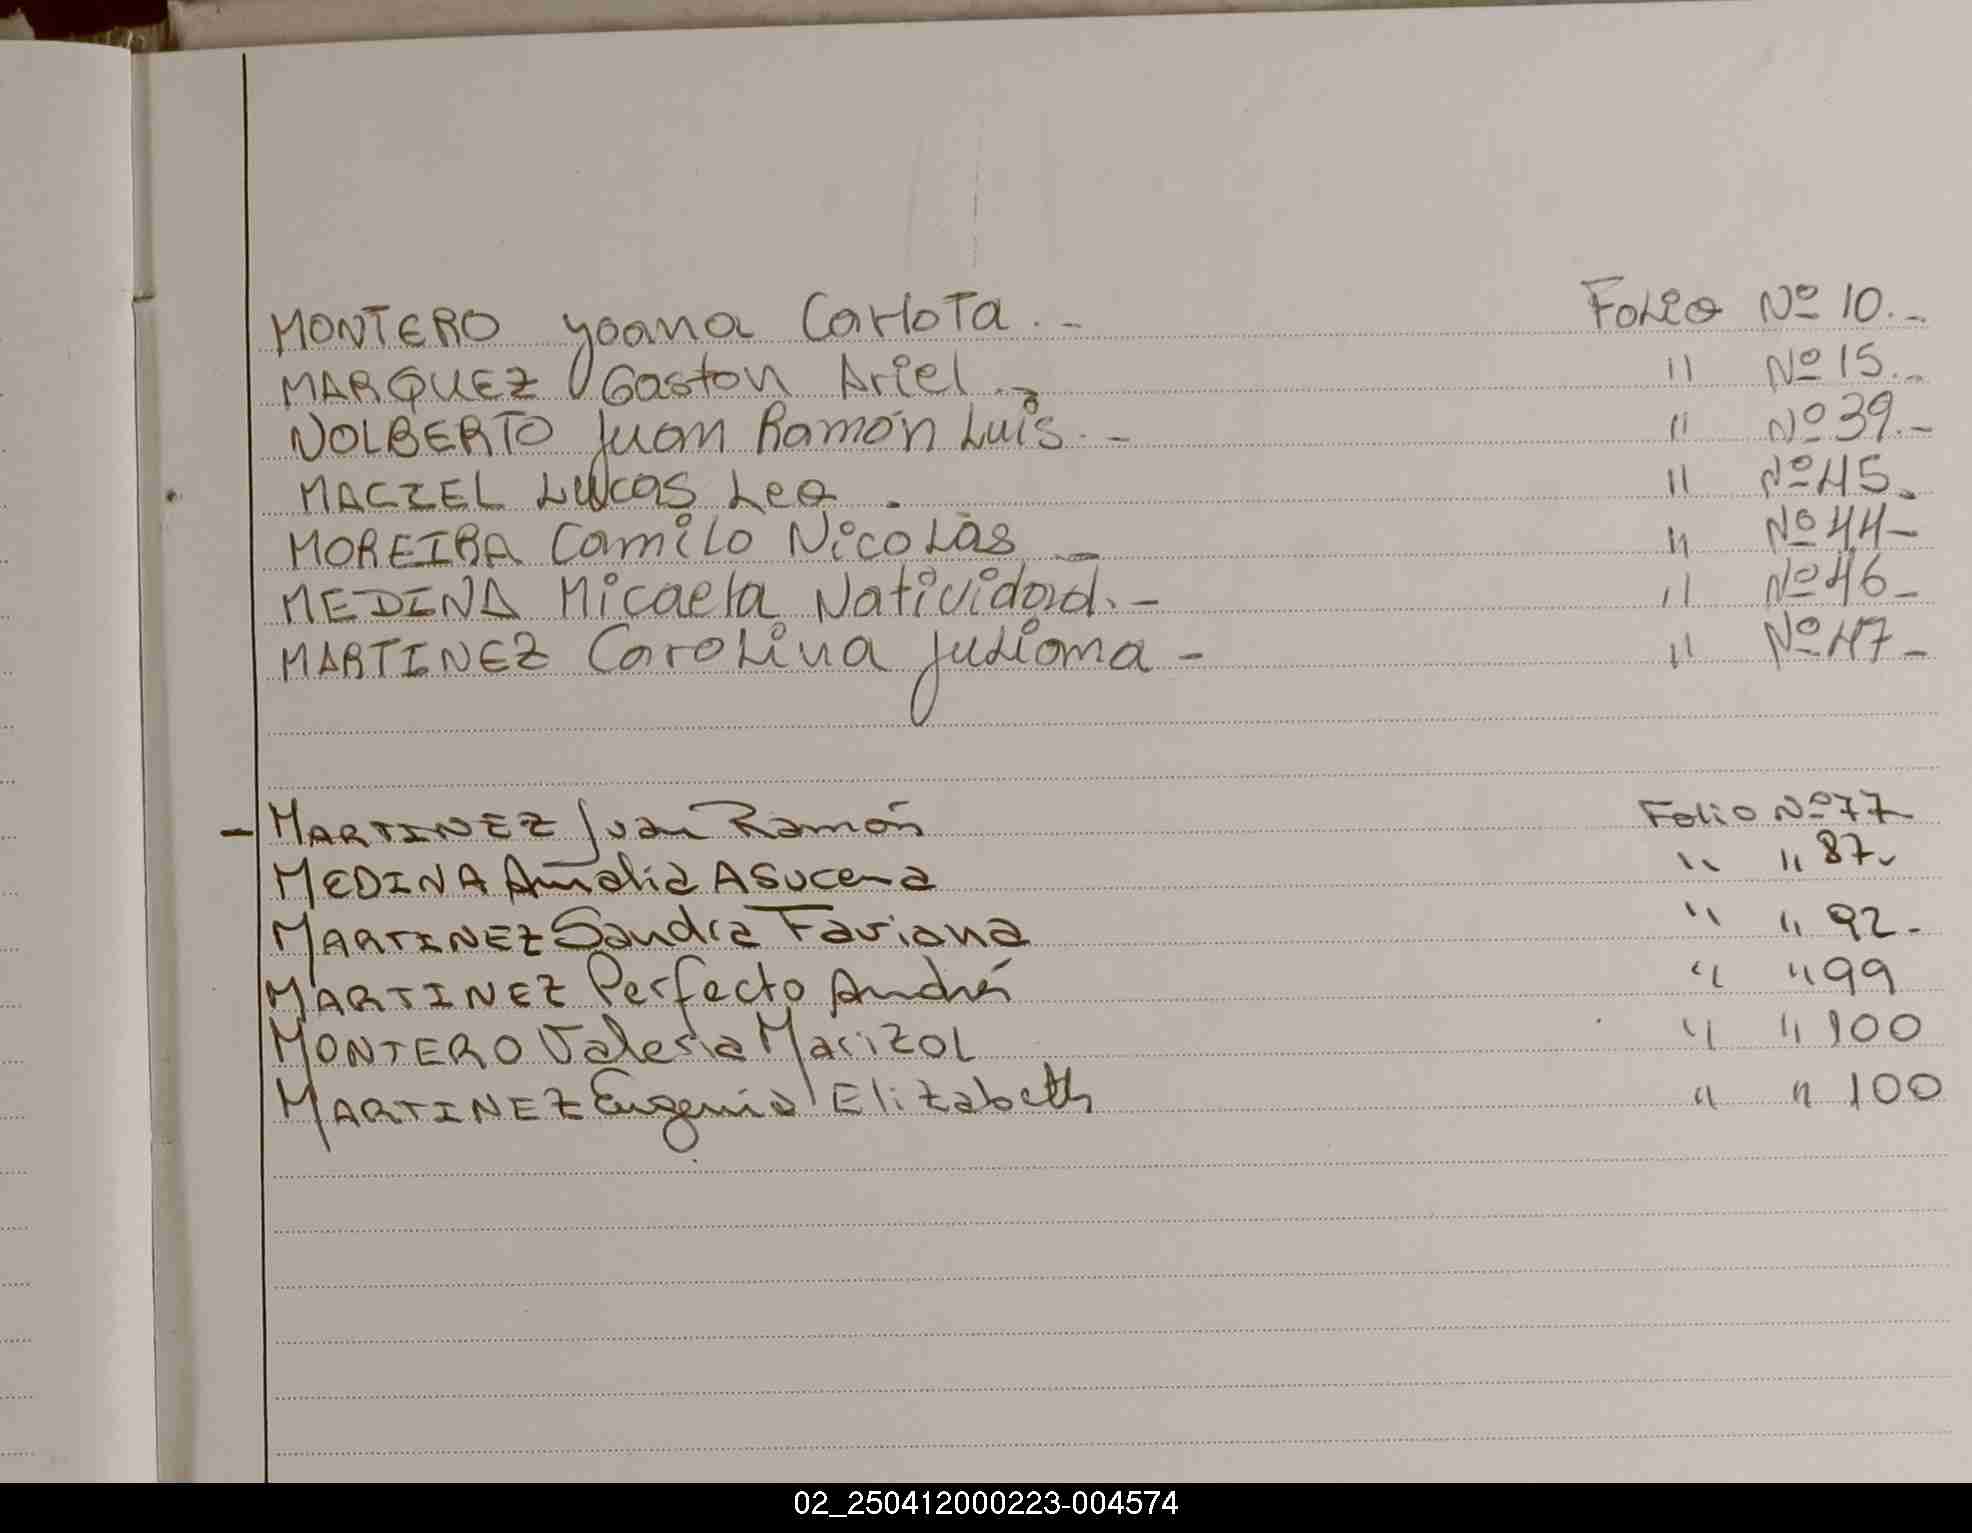 MONTERO Yoana Carlota.- Folio Nº 10.-
MARQUEZ Gaston Ariel.- " Nº 15.-
NOLBERTO Juan Ramón Luis.- " Nº 39.-
MACIEL Lucas Leo. " Nº 45.
MOREIRA Camilo Nicolàs - " Nº 44-
MEDINA Micaela Natividad.- " Nº 46-
MARTINEZ Carolina Juliana - " Nº 47-
- MARTINEZ Juan Ramón Folio Nº 77
MEDINA Amalia Asucena " " 87-
MARTINEZ Sandra Faviana " " 92-
MARTINEZ Perfecto André " " 99
MONTERO Valeria Marizol " " 100
MARTINEZ Eugenia Elizabeth " " 100
02_250412000223-004574